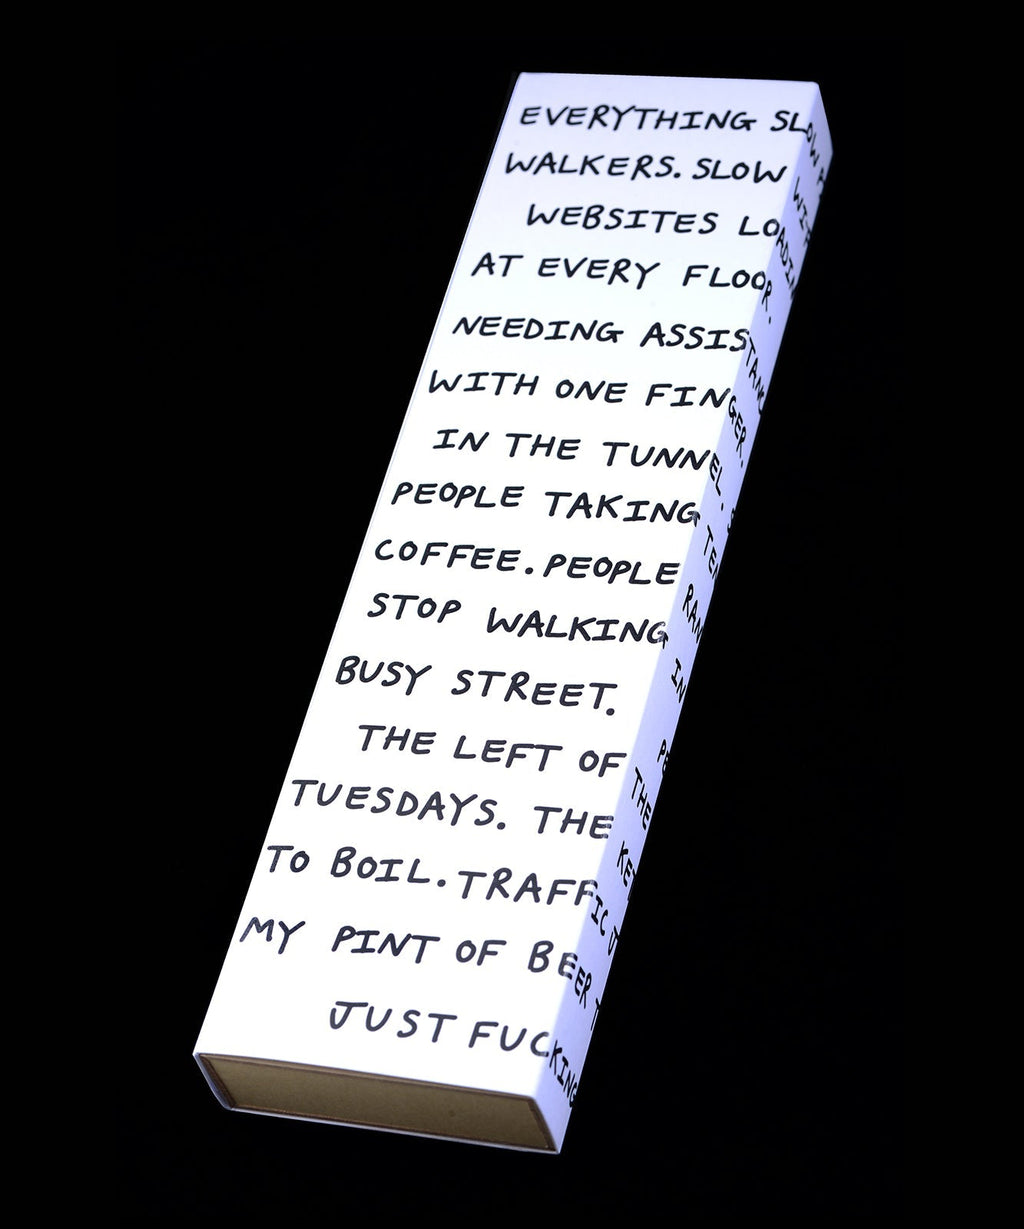 EVERYTHING SLOW
WALKERS. SLOW
WEBSITES LOADIN
AT EVERY FLOOR.
NEEDING ASSISTANC
WITH ONE FINGER.
IN THE TUNNEL.
PEOPLE TAKING
COFFEE. PEOPLE
STOP WALKING IN
BUSY STREET.
THE LEFT OF THE
TUESDAYS. THE KET
TO BOIL. TRAFFIC J
MY PINT OF BEER T
JUST FUCKING